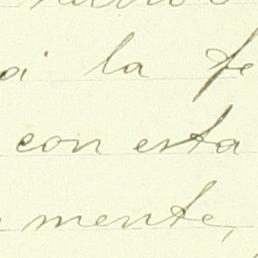 la fe
con esta
mente,